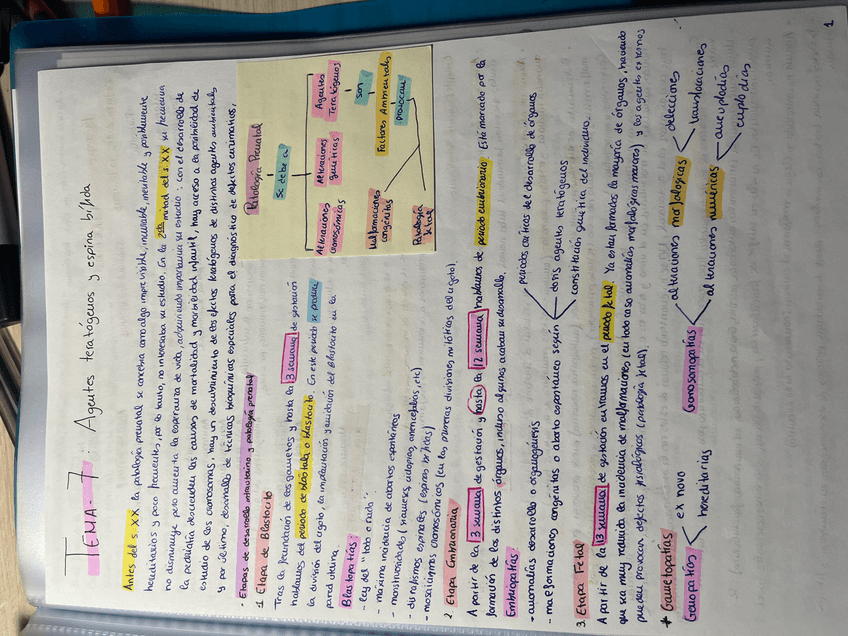 TEMA-7: Agentes teratógenos y espina bífida
Antes del s.XX la patología prenatal se concebía como algo imprevisible, incurable, inevitable y posiblemente
hereditarios y poco frecuentes, por lo tanto, no interesaba su estudio. En la 2nda mitad del s.XX su frecuencia
no disminuye pero aumenta la esperanza de vida, adquiriendo importancia su estudio: con el desarrollo de
la pediatría descienden las causas de mortalidad y morbilidad infantil, hay acceso a la posibilidad de
estudio de los cromosomas, hay un descubrimiento de los efectos teratógenos de distintos agentes ambientales,
y por último, desarrollo de técnicas bioquímicas especiales para el diagnóstico de defectos enzimáticos.
Patología Prenatal
se debe a
Alteraciones cromosómicas
Alteraciones genéticas
Agentes Teratógenos
son
Factores Ambientales
provocan
Malformaciones congénitas
Patología fetal
· Etapas de desarrollo intrauterino y patología prenatal
1. Etapa de Blastocito
Tras la fecundación de los gametos y hasta la 3 semana de gestación
hablamos del período de blástula o blastocito. En este período se produce
la división del cigoto, la implantación y anidación del Blastocito en la
pared uterina.
Blastopatías:
- ley del "todo o nada".
- máxima incidencia de abortos espontáneos
- monstruosidades (siameses, ciclopías, anencefalias, etc)
- durafismos espinales (espinas bífidas)
- mosaicismos cromosómicos (en las primeras divisiones mitóticas del cigoto).
2. Etapa Embrionaria
A partir de la 3 semana de gestación y hasta la 12 semana hablamos de período embrionario. Está marcado por la
formación de los distintos órganos, incluso algunos acaban su desarrollo.
Embriopatías:
- anomalías desarrollo u organogénesis
- malformaciones congénitas o aborto espontáneo según
períodos críticos del desarrollo de órganos
dosis agentes teratógenos
constitución genética del individuo.
3. Etapa Fetal
A partir de la 13 semana de gestación entramos en el período fetal. Ya están formados la mayoría de órganos, haciendo
que sea muy reducida la incidencia de malformaciones (en todo caso anomalías morfológicas menores) y los agentes externos
pueden provocar defectos fisiológicos (patología fetal).
* Gametopatías
Genopatías
ex novo
hereditarias
Gonosomopatías
alteraciones morfológicas
delecciones
translocaciones
alteraciones numéricas
aneuploidías
euploidías
1